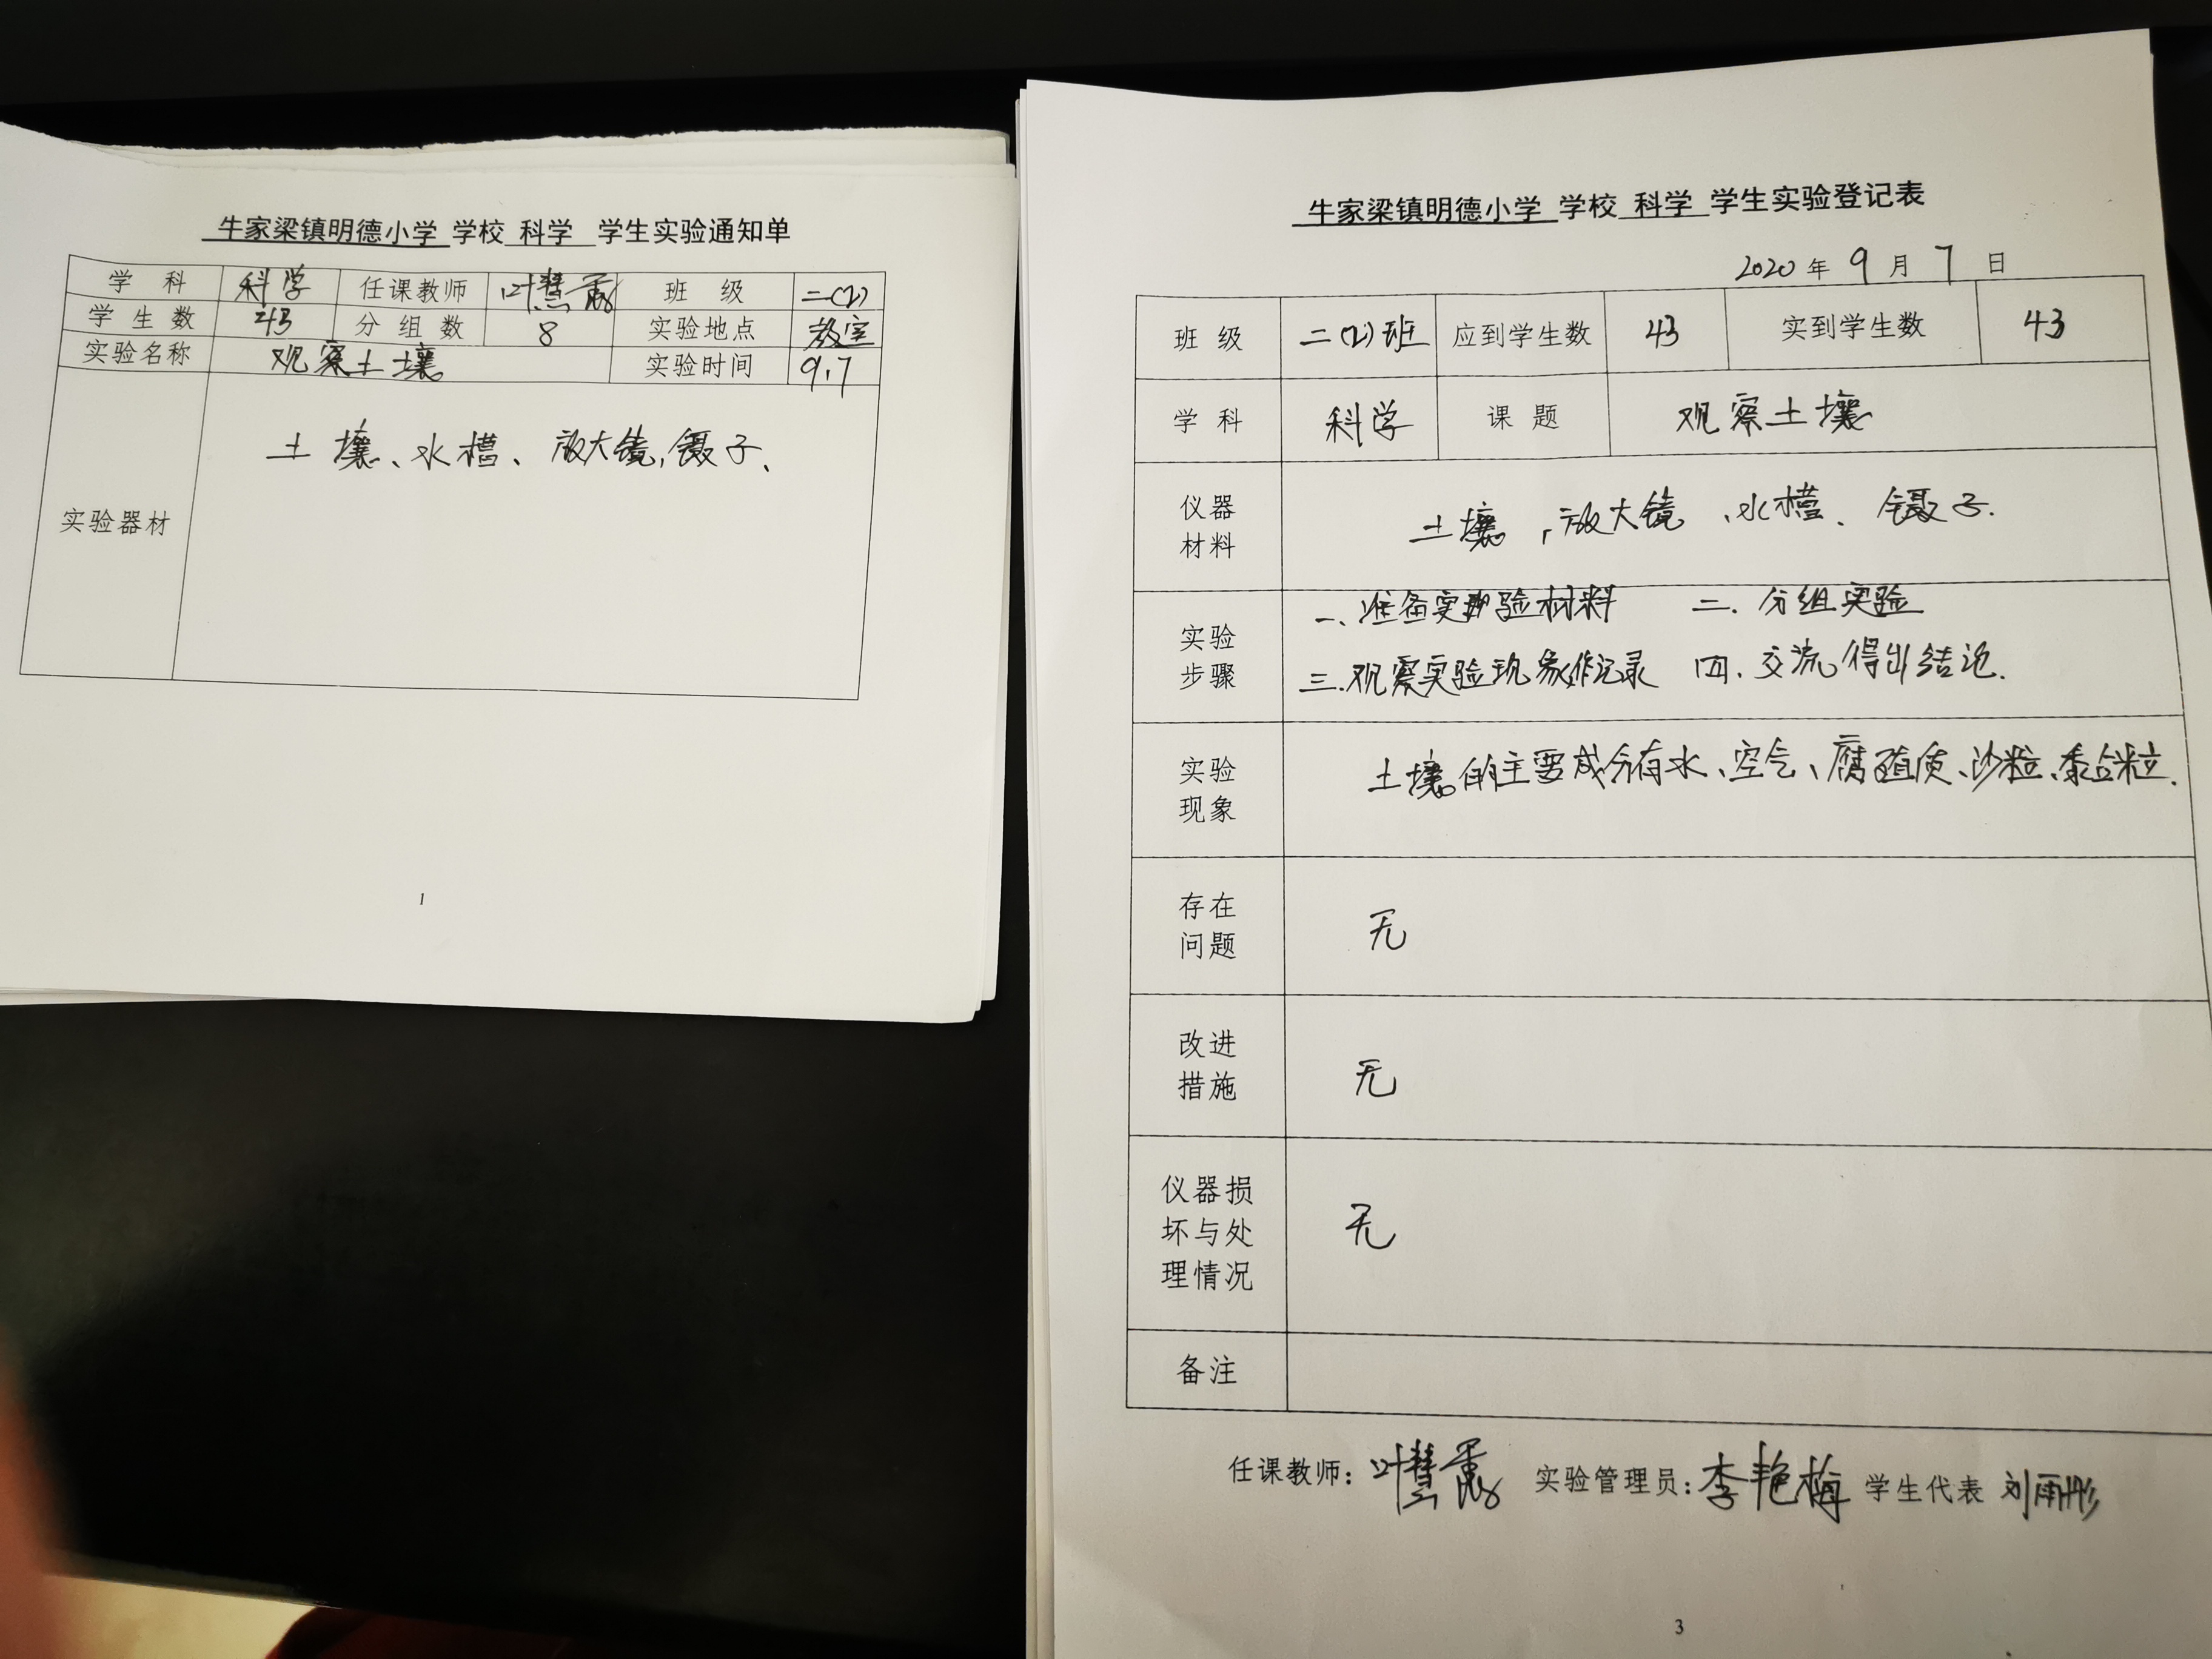 牛家梁镇明德小学 学校 科学 学生实验通知单
学 科 科学 任课教师 叶慧 班 级 二(2)
学生数 43 分组数 8 实验地点 教室
实验名称 观察土壤 实验时间 9.7
实验器材 土壤、水槽、放大镜,镊子、
1
牛家梁镇明德小学 学校 科学 学生实验登记表
2020年 9月 7日
班 级 二(2)班 应到学生数 43 实到学生数 43
学 科 科学 课 题 观察土壤
仪器
材料
土壤,放大镜、水槽、镊子.
实验
步骤
一、准备实验材料 二.分组实验
三.观察实验现象作记录 四.交流得出结论.
实验
现象
土壤的主要成分有水、空气、腐殖质、沙粒、黏粒.
存在
问题
无
改进
措施
无
仪器损
坏与处
理情况
无
备注
任课教师:叶慧 实验管理员:李艳梅 学生代表 刘雨彤
3